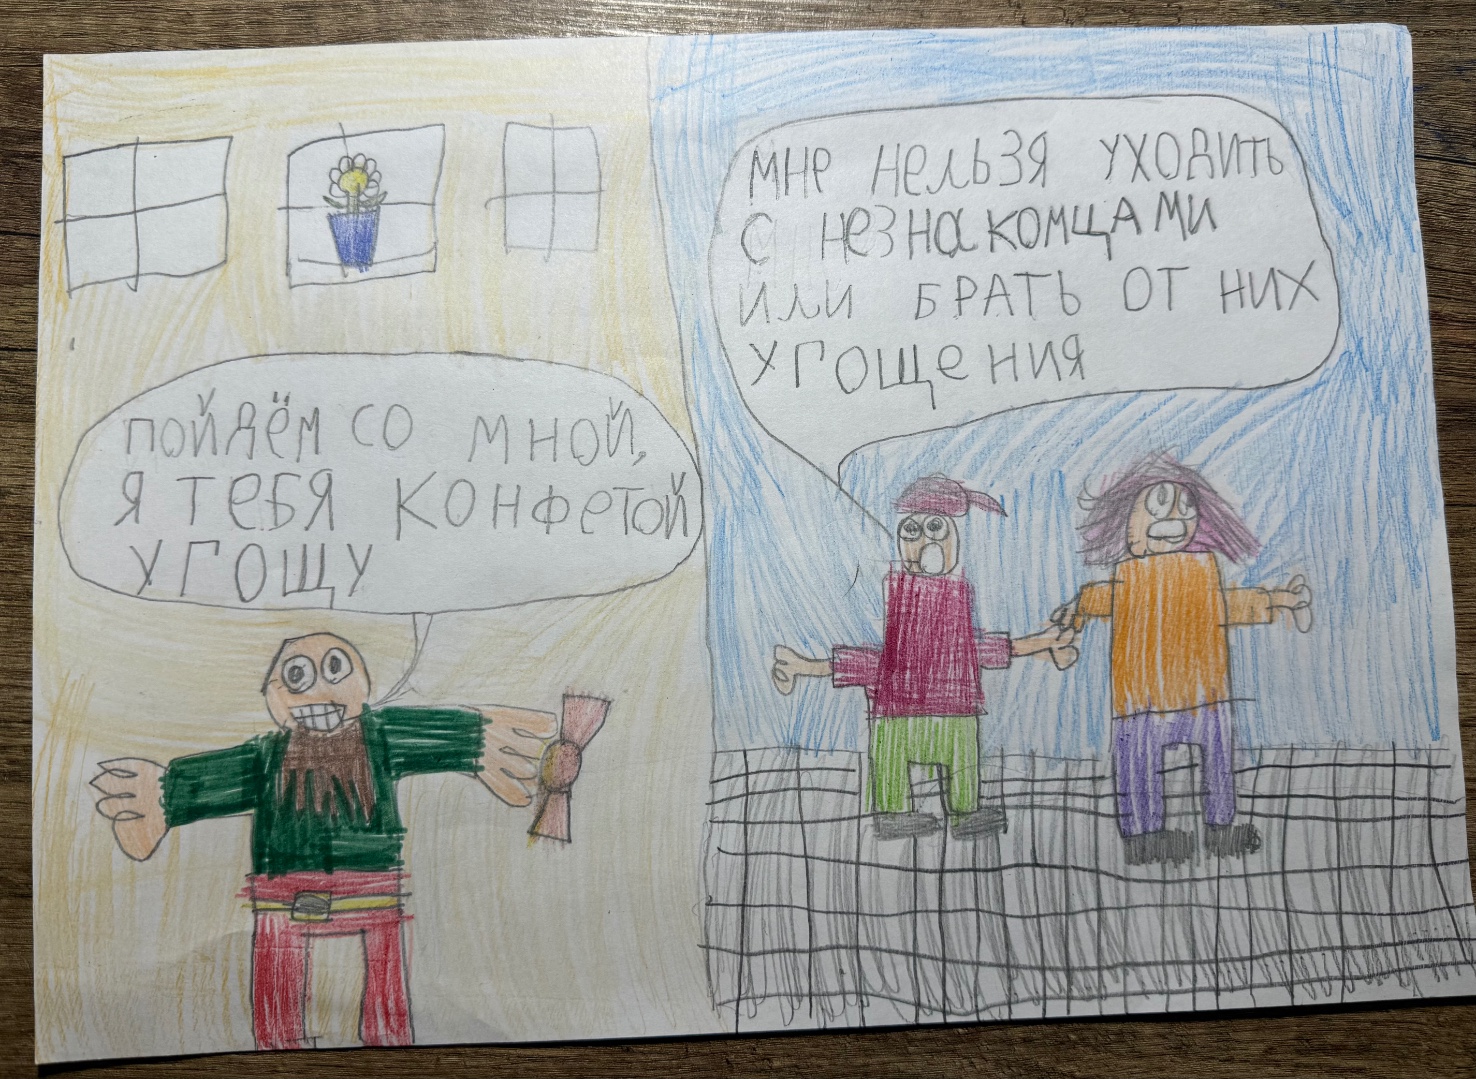 ПОЙДЁМ СО МНОЙ,
Я ТЕБЯ КОНФЕТОЙ
УГОЩУ
МНЕ НЕЛЬЗЯ УХОДИТЬ
С НЕЗНАКОМЦАМИ
ИЛИ БРАТЬ ОТ НИХ
УГОЩЕНИЯ